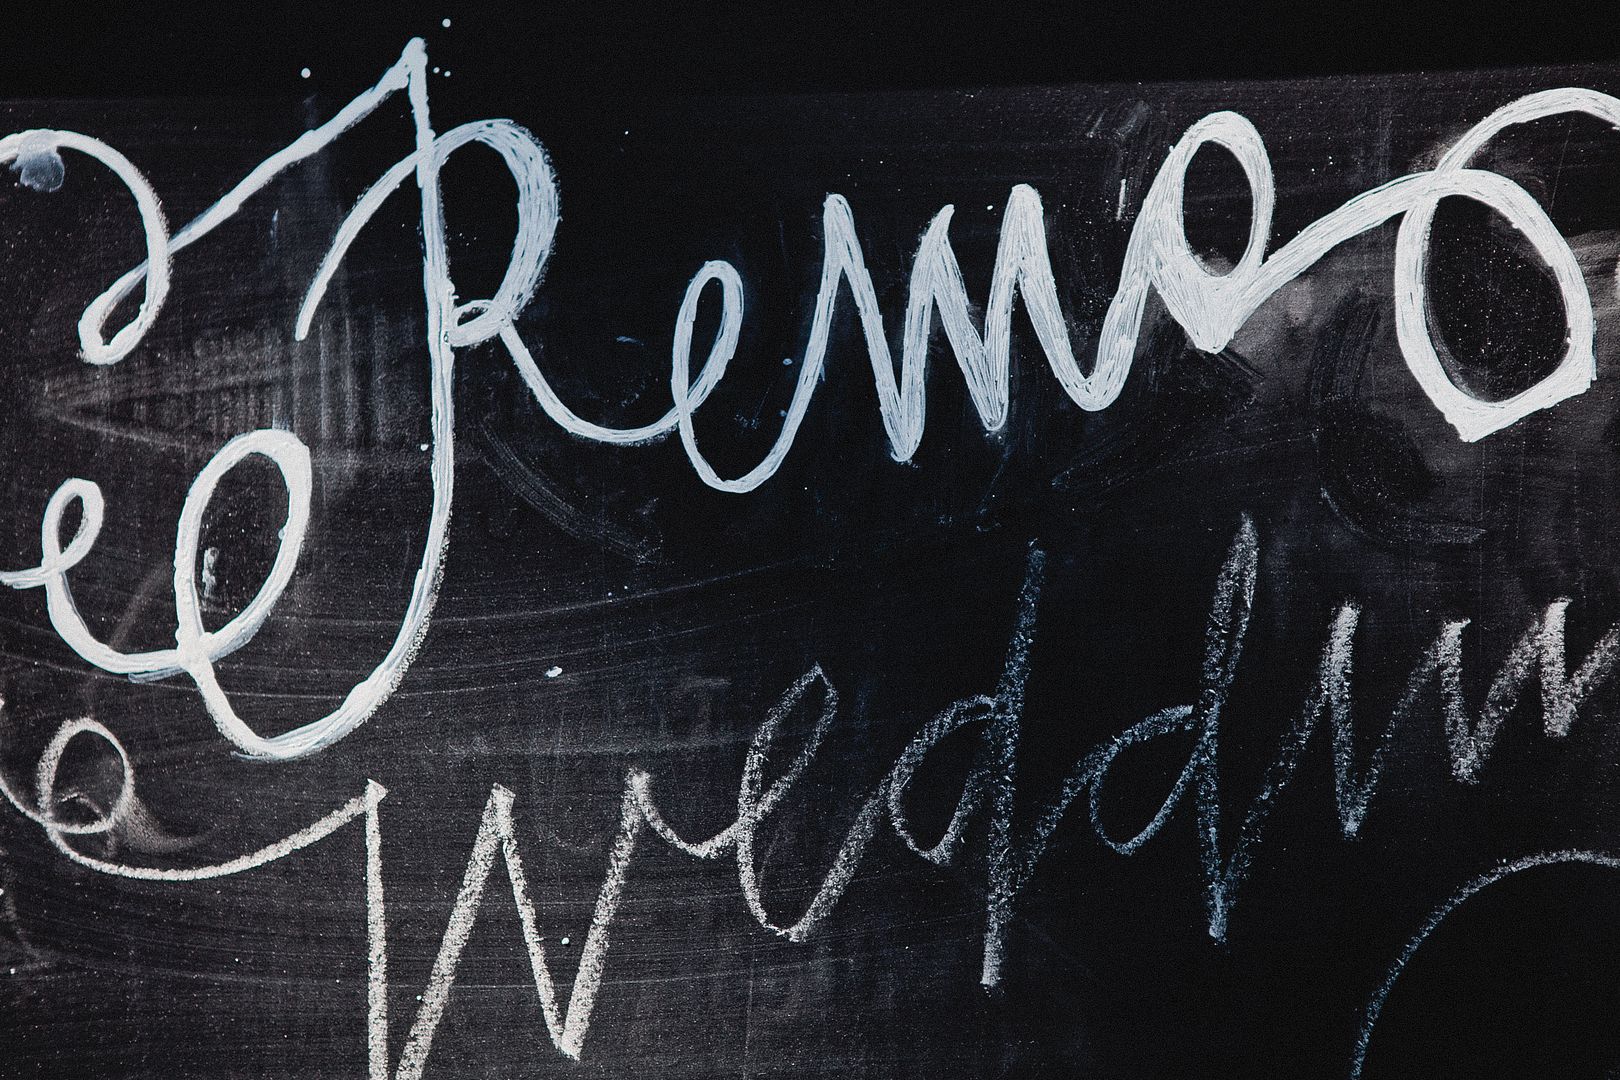 Remo
Weddin